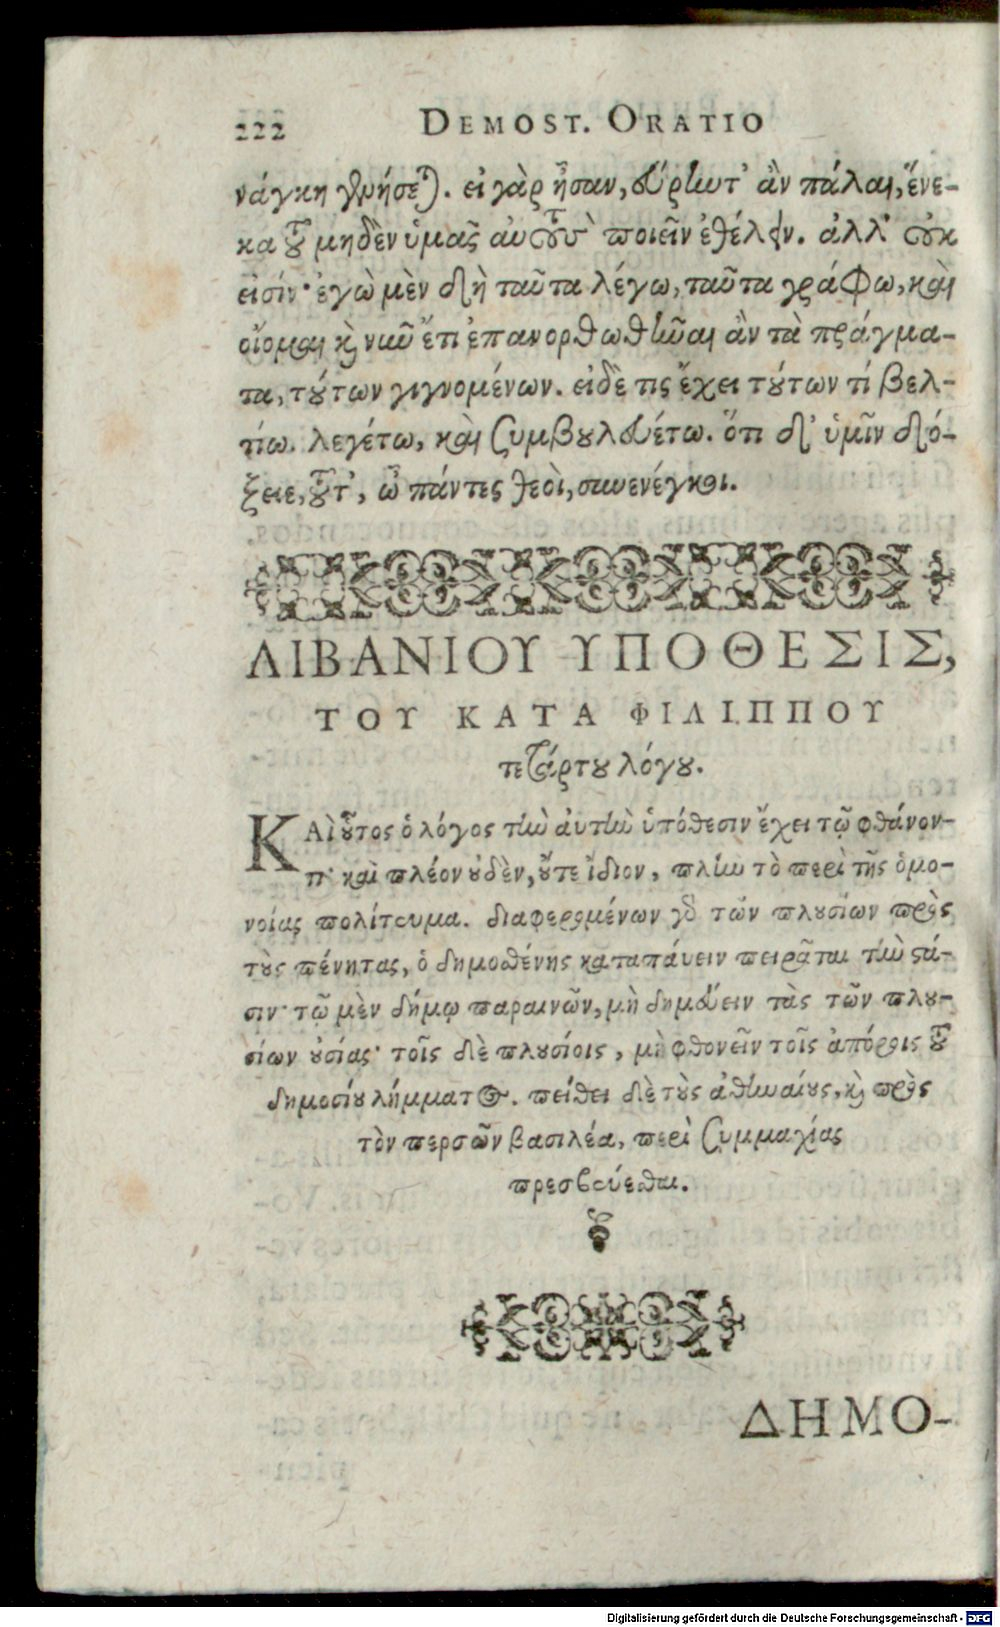 222 DEMOST. ORATIO
νάγκη γενήσεται. εἰ γὰρ ἦσαν, εὕρηντ' ἂν πάλαι, ἕνε-
κα τοῦ μηδὲν ὑμᾶς αὐτοὺς ποιεῖν ἐθέλειν. ἀλλ' οὐκ
εἰσίν· ἐγὼ μὲν δὴ ταῦτα λέγω, ταῦτα γράφω, καὶ
οἴομαι καὶ νῦν ἔτι ἐπανορθωθῆναι ἂν τὰ πράγμα-
τα, τούτων γιγνομένων. εἰ δὲ τις ἔχει τούτων τί βελ-
τίω. λεγέτω, καὶ συμβουλευέτω. ὅτι δ' ὑμῖν δό-
ξειε, τοῦτ', ὦ πάντες θεοὶ, συνενέγκοι.
ΛΙΒΑΝΙΟΥ ΥΠΟΘΕΣΙΣ,
ΤΟΥ ΚΑΤΑ ΦΙΛΙΠΠΟΥ
τετάρτου λόγου.
ΚΑὶ οὗτος ὁ λόγος τὴν ἀυτὴν ὑπόθεσιν ἔχει τῷ φθάνον-
τι· καὶ πλέον οὐδὲν, οὔτε ἴδιον, πλὴν τὸ περὶ τῆς ὁμο-
νοίας πολίτευμα. διαφερομένων γὰρ τῶν πλουσίων πρὸς
τοὺς πένητας, ὁ δημοσθένης καταπάυειν πειρᾶται τὴν στά-
σιν· τῷ μὲν δήμῳ παραινῶν, μὴ δημεύειν τὰς τῶν πλου-
σίων οὐσίας· τοῖς δὲ πλουσίοις, μὴ φθονεῖν τοῖς ἀπόροις τοῦ
δημοσίου λήμματος. πείθει δὲ τοὺς ἀθηναίους, καὶ πρὸς
τὸν περσῶν βασιλέα, περὶ συμμαχίας
πρεσβεύεσθαι.
ΔΗΜΟ-
Digitalisierung gefördert durch die Deutsche Forschungsgemeinschaft - DFG